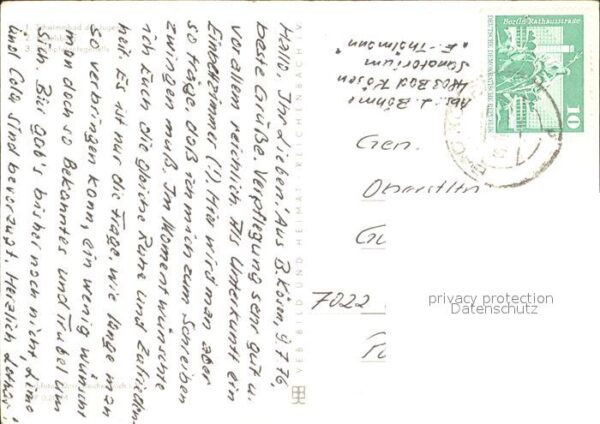 Hallo, Ihr Lieben! Aus B. Kösen, 9.7.76,
beste Grüße. Verpflegung sehr gut u.
vor allem reichlich. Als Unterkunft ein
Einbettzimmer (!) Hier wird man aber
so träge, daß ich mich zum Schreiben
zwingen muß. Im Moment wünschte
ich Euch die gleiche Ruhe und Zufrieden-
heit. Es ist nur die Frage, wie lange man
so verbringen kann, ein wenig wünscht
man doch so Bekanntes und Trubel um
sich. Bier gab's bisher noch nicht, Limo
und Cola sind bevorzugt. Herzlich Lothar!
VEB BILD UND HEIMAT REICHENBACH i.V.
Abs. L. Böhme
4803 Bad Kösen
Sanatorium
"E. Thälmann"
Berlin, Rathausstraße
DEUTSCHE DEMOKRATISCHE REPUBLIK
10
Gen.
Oberstltn
7022
privacy protection
Datenschutz